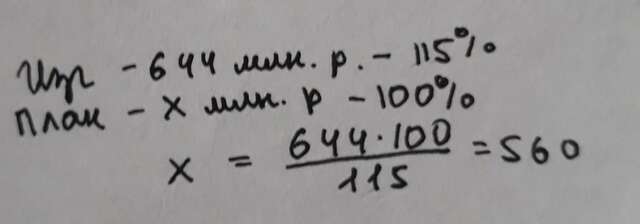 Изг - 644 млн. р. - 115%
План - x млн. р - 100%
x = 644·100 / 115 = 560